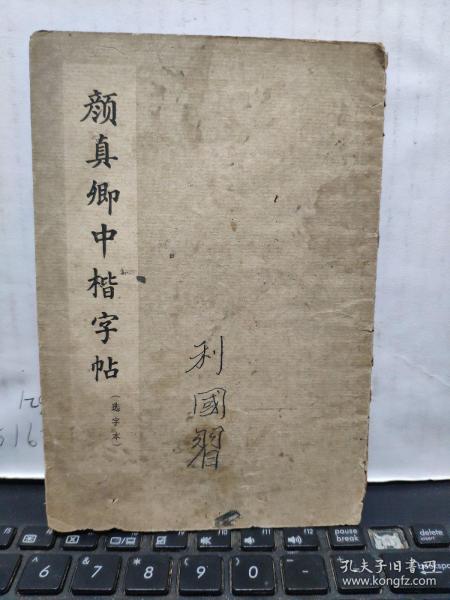 颜真卿中楷字帖
（选字本）
利國習
f5
f6
f7
f8
f9
f10
f11
f12
pause
break
delete
6
7
8
9
0
孔夫子旧书网
kongfz.com